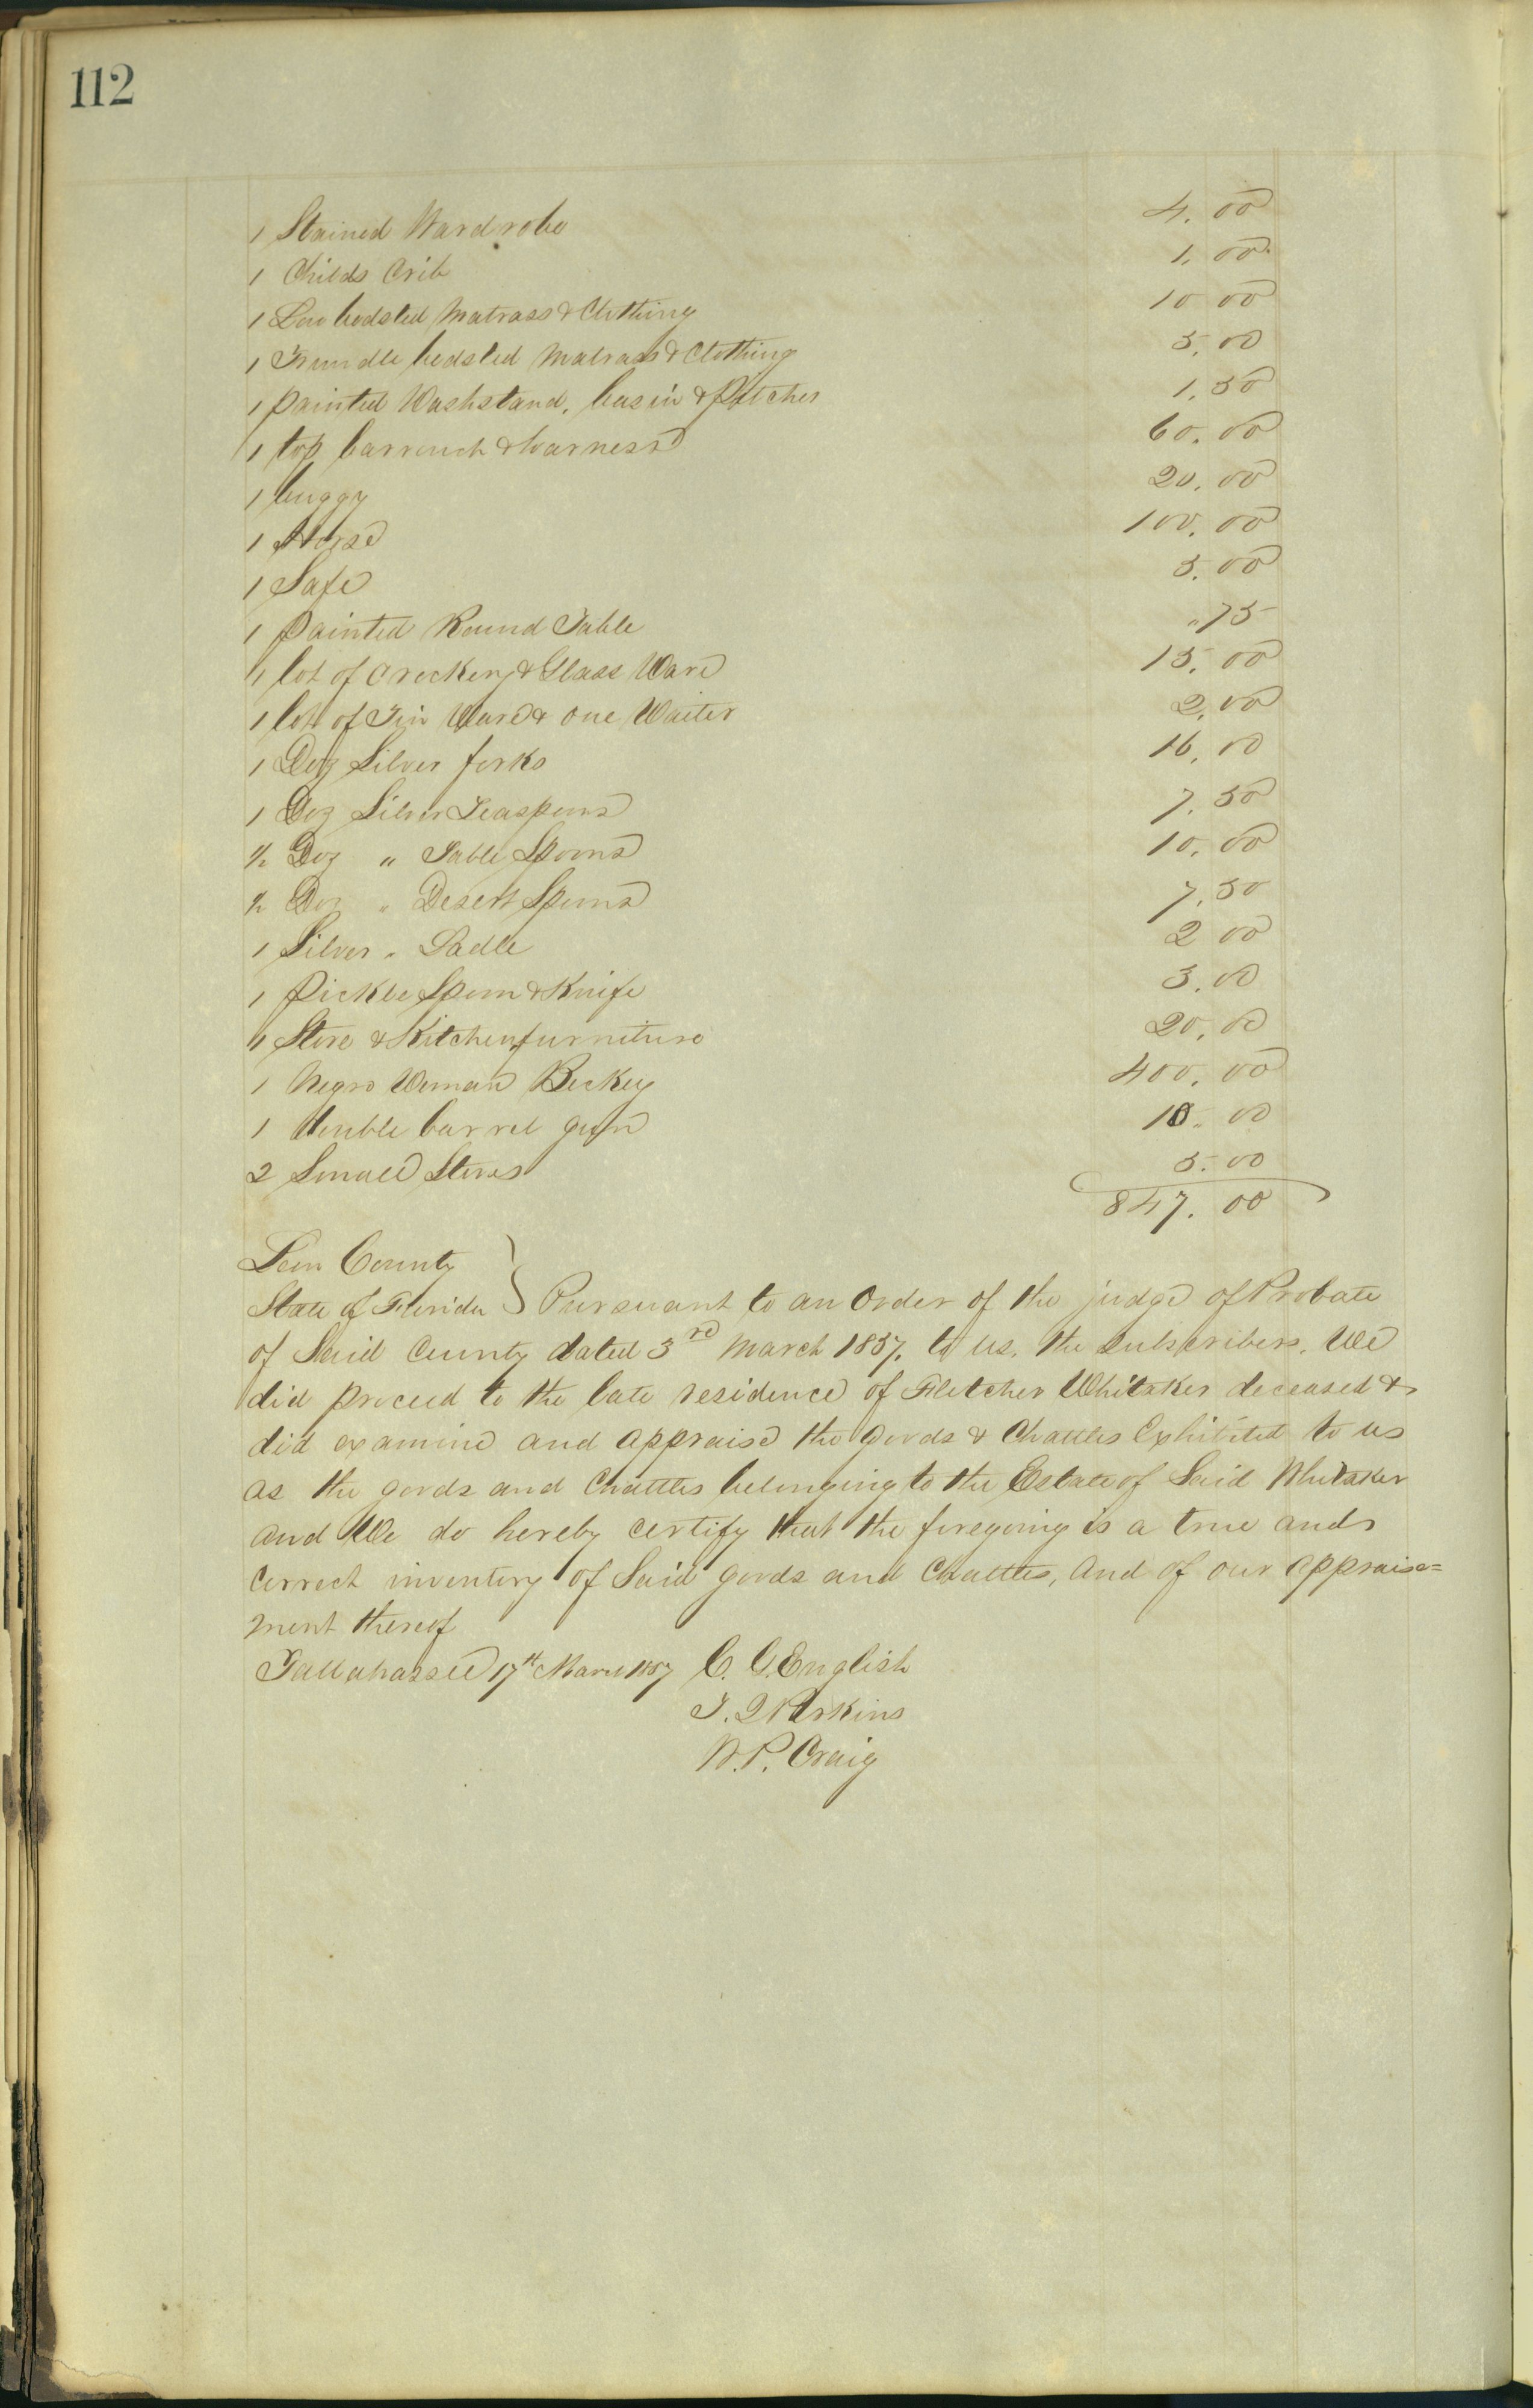 112
1 Stained Wardrobe 4.00
1 Childs Crib 1.00
1 Low bedsted Matrass & Clothing 10 00
1 Trundle bedsted Matrass & Clothing 5.00
1 painted Washstand, basin & Pitcher 1.50
1 top barrouch & harness 60.00
1 buggy 20.00
1 Horse 100.00
1 Safe 5.00
1 painted Round Table "75
1 lot of Crockery & Glass Ware 15.00
1 lot of Tin Ware & one Waiter 2.00
1 Doz Silver forks 16.00
1 Doz Silver Teaspoons 7.50
½ Doz " Table Spoons 10.00
½ Doz " Desert Spoons 7.50
1 Silver " Ladle 2 00
1 Pickle Spoon & Knife 3.00
1 Stove & Kitchen furniture 20.00
1 Negro Woman Beckey 400.00
1 double barrel gun 10.00
2 Small Stoves 5.00
847.00
Leon County
State of Florida } Pursuant to an order of the judge of Probate
of Said County dated 3rd March 1857. to us, the subscribers. We
did proceed to the late residence of Fletcher Whitaker deceased &
did examine and appraise the goods & Chattles Exhibited to us
as the goods and Chattles belonging to the Estate of Said Whitaker
and We do hereby certify that the foregoing is a true and
correct inventory of Said goods and Chattles, And of our appraise=
ment thereof
Tallahassee 17th March 1857 C. G. English
T. J. Perkins
W. P. Craig